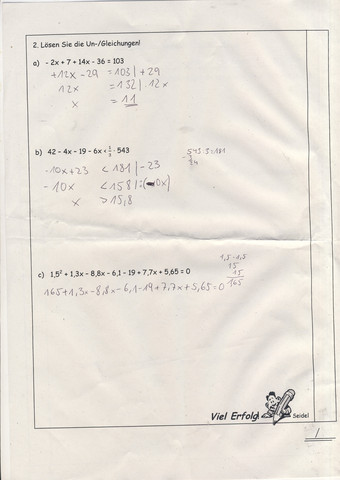 2. Lösen Sie die Un-/Gleichungen!
a) - 2x + 7 + 14x - 36 = 103
+12x - 29 = 103 | + 29
12x = 132 | 12x
x = 11
b) 42 - 4x - 19 - 6x < 1/3 · 543
543:3=181
24
-10x+23 < 181 | -23
- 10x < 158 | :(-10x)
x > 15,8
c) 1,5² + 1,3x - 8,8x - 6,1 - 19 + 7,7x + 5,65 = 0
1,5 · 1,5
15
15
165
165+1,3x-8,8x-6,1-19+7,7x+5,65=0
Viel Erfolg!
Seidel